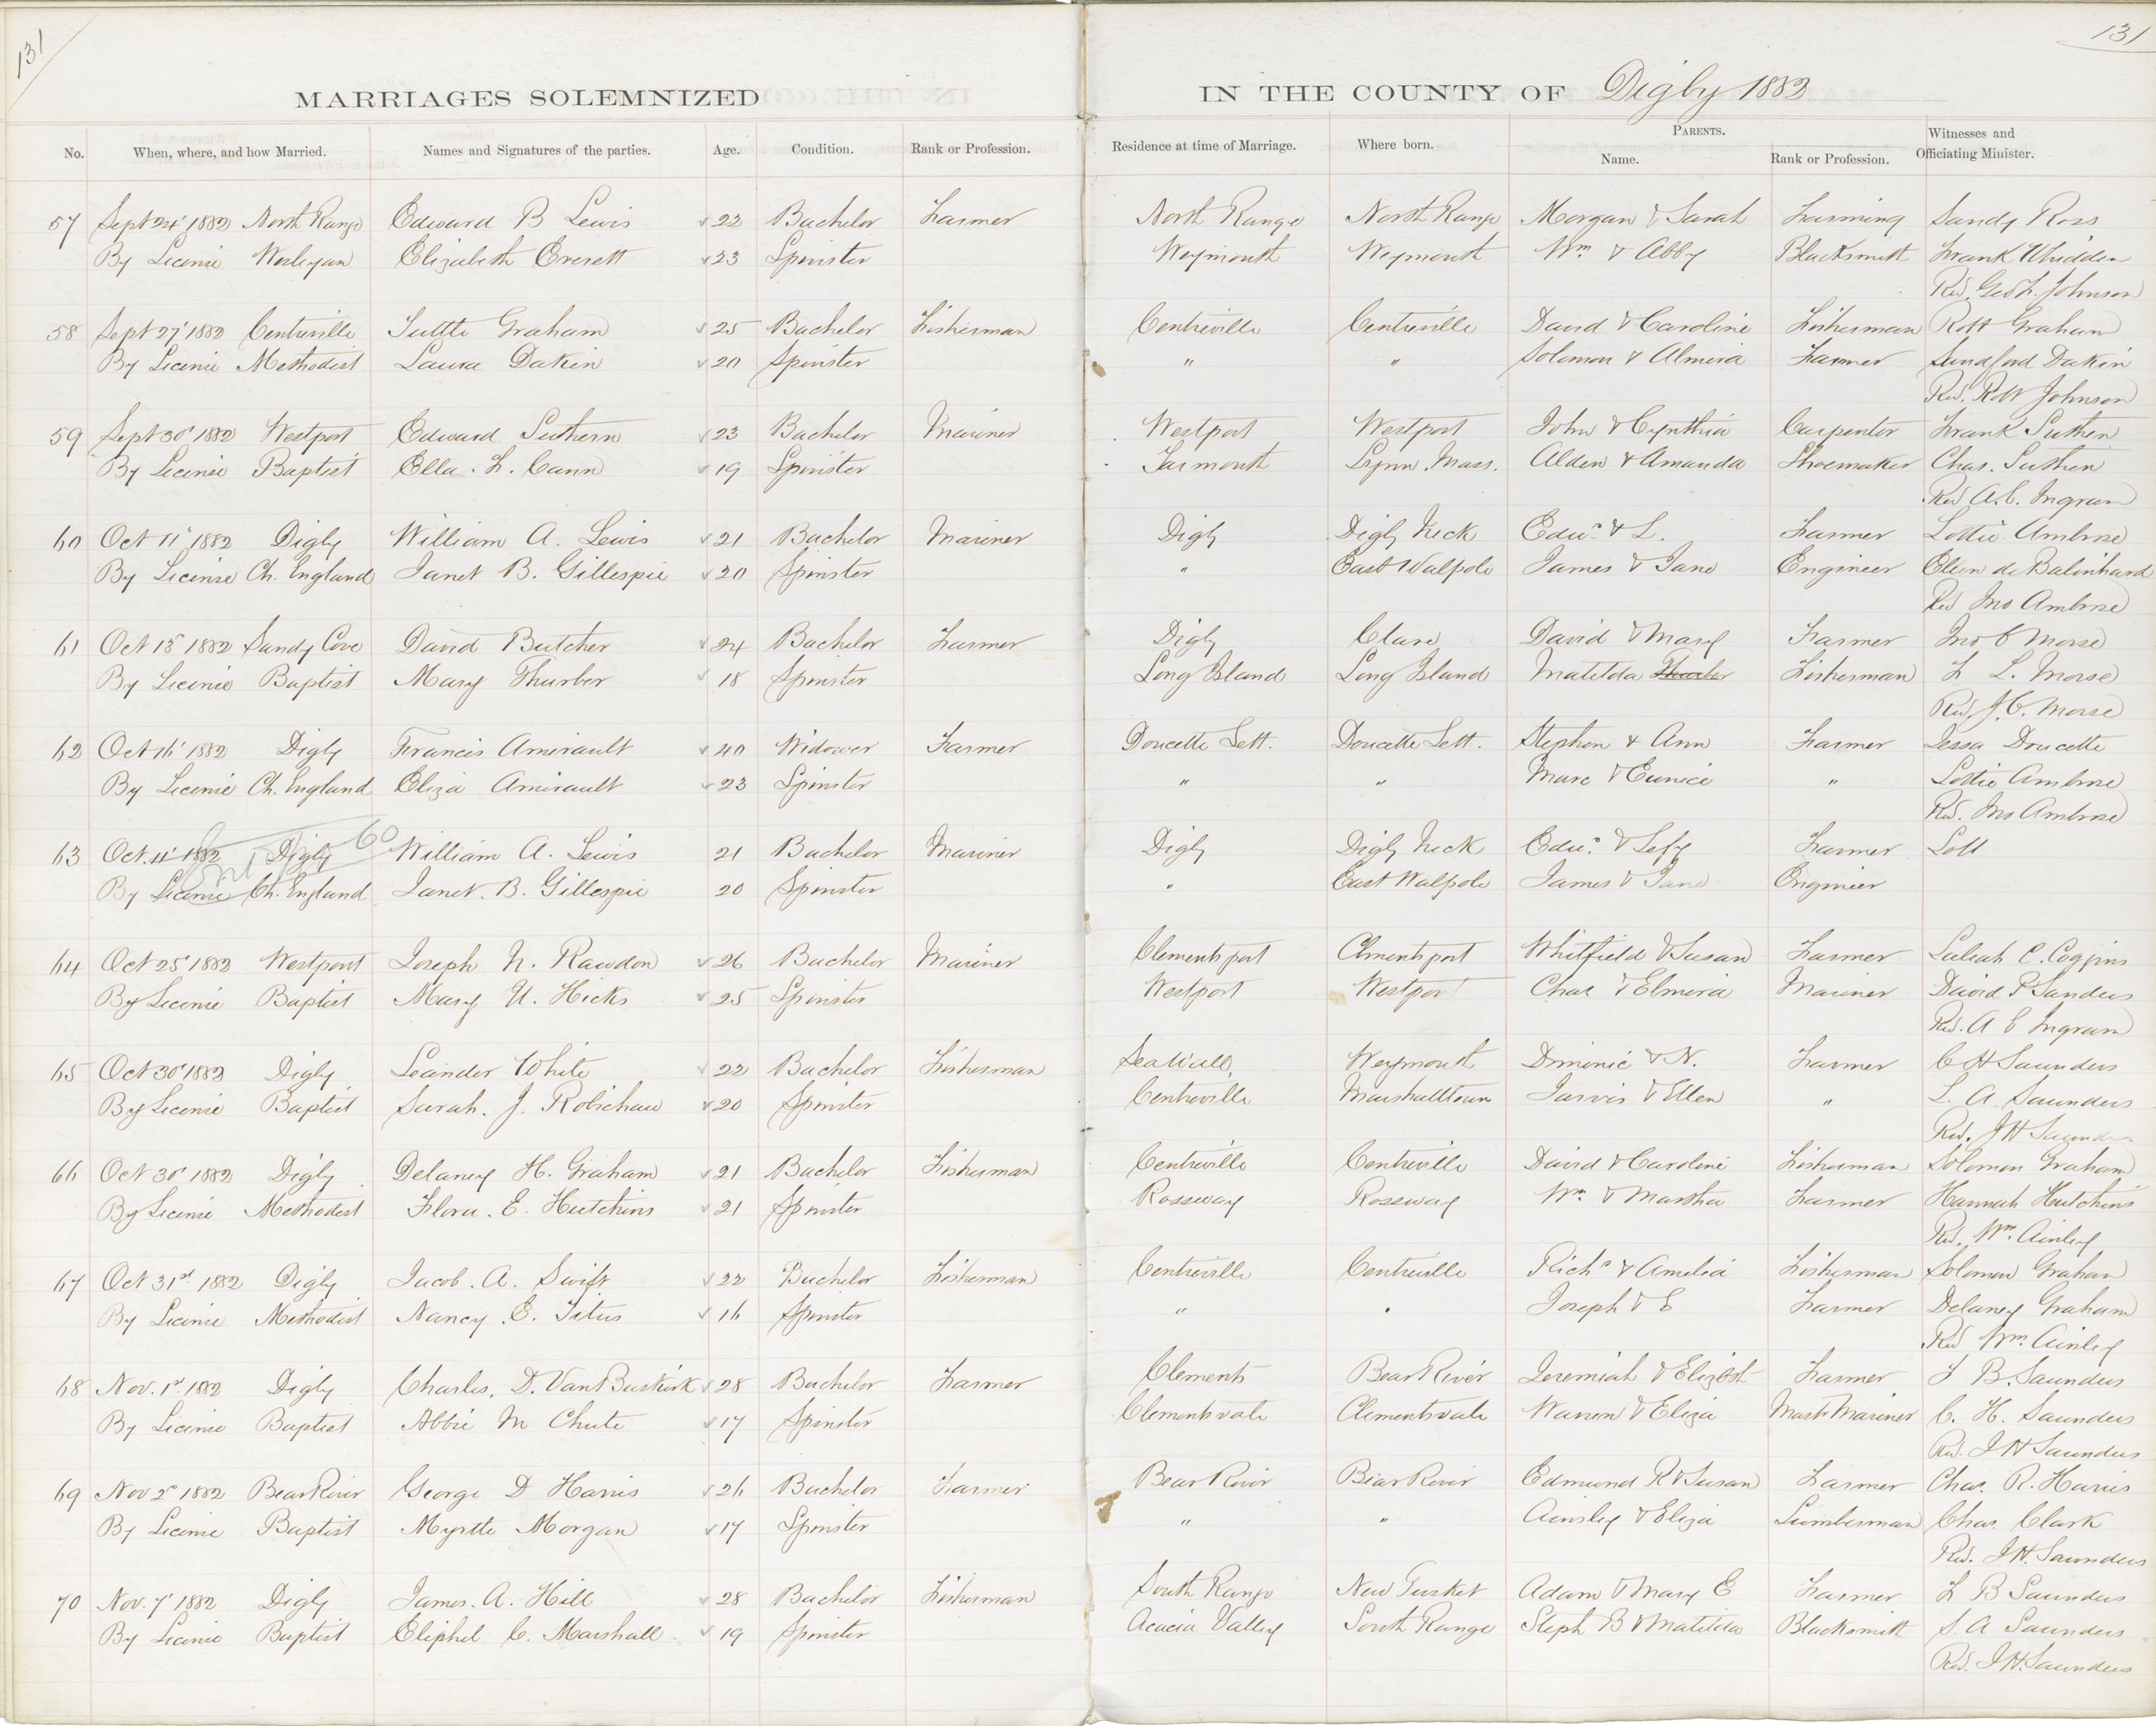 131
131
MARRIAGES SOLEMNIZED IN THE COUNTY OF Digby 1882
No. When, where, and how Married. Names and Signatures of the parties. Age. Condition. Rank or Profession. Residence at time of Marriage. Where born. PARENTS. Name. Rank or Profession. Witnesses and Officiating Minister.
57 Sept 24' 1882 North Range Edward B Lewis 22 Bachelor Farmer North Range North Range Morgan & Sarah Farming Sandy Ross
By License Wesleyan Elizabeth Everett 23 Spinster Weymouth Weymouth Wm & Abby Blacksmith Frank Whidden
Rev. Geo F. Johnson
58 Sept 27' 1882 Centreville Tuttle Graham 25 Bachelor Fisherman Centreville Centreville David & Caroline Fisherman Robt Graham
By License Methodist Laura Dakin 20 Spinster " " Solomon & Almira Farmer Sandford Dakin
Rev. Robt Johnson
59 Sept 30' 1882 Westport Edward Suthern 23 Bachelor Mariner Westport Westport John & Cynthia Carpenter Frank Suthern
By License Baptist Ella. F. Cann 19 Spinster Yarmouth Lynn Mass. Alden & Amanda Shoemaker Chas. Suthern
Rev A. C. Ingram
60 Oct 11' 1882 Digby William A. Lewis 21 Bachelor Mariner Digby Digby Neck Edwd & L. Farmer Lottie Ambrose
By License Ch. England Janet B. Gillespie 20 Spinster " East Walpole James & Jane Engineer de Balinhard
Rev Jno Ambrose
61 Oct 15' 1882 Sandy Cove David Butcher 24 Bachelor Farmer Digby Clare David & Mary Farmer Jno C Morse
By License Baptist Mary Thurber 18 Spinster Long Island Long Island Matilda Thurber Fisherman F L. Morse
Rev. J. C. Morse
62 Oct 16' 1882 Digby Francis Amirault 40 Widower Farmer Doucette Sett. Doucette Sett. Stephen & Ann Farmer Jessa Doucette
By License Ch. England Eliza Amirault 23 Spinster " " Marc & Eunice " Lottie Ambrose
Rev. Jno Ambrose
63 Oct. 11' 1882 Digby 60 William A. Lewis 21 Bachelor Mariner Digby Digby Neck Edwd & Lefy Farmer Lott
By License Ch. England Janet. B. Gillespie 20 Spinster " East Walpole James & Jane Engineer
64 Oct 25' 1882 Westport Joseph N. Rawdon 26 Bachelor Mariner Clementsport Clmentsport Whitfield & Susan Farmer Coggins
By License Baptist Mary U. Hicks 25 Spinster Westport Westport Chas & Elmira Mariner David P Sanders
Rev. A C Ingram
65 Oct 30' 1882 Digby Leander White 22 Bachelor Fisherman Sea Wall, Weymouth Dminic & N. Farmer C H Saunders
By License Baptist Sarah. J. Robichau 20 Spinster Centreville Marshalltown Jarvis & Ellen " L. A. Saunders
Rev. J H Saunders
66 Oct 30' 1882 Digby Delaney H. Graham 21 Bachelor Fisherman Centreville Centreville David & Caroline Fisherman Solomon Graham
By License Methodist Flora. E. Hutchins 21 Spinster Rossway Rossway Wm & Martha Farmer Hannah Hutchins
Rev. Wm. Ainley
67 Oct 31st 1882 Digby Jacob. A. Swift 22 Bachelor Fisherman Centreville Centreville Richd & Amelia Fisherman Solomon Graham
By License Methodist Nancy. E. Titus 16 Spinster " " Joseph & E Farmer Delaney Graham
Rev Wm. Ainley
68 Nov. 1st 1882 Digby Charles. D. VanBuskirk 28 Bachelor Farmer Clements Bear River Jeremiah & Elizbth Farmer F B. Saunders
By License Baptist Abbie M Chute 17 Spinster Clementsvale Clementsvale Warren & Eliza Mastr Mariner C. H. Saunders
Rev. J H Saunders
69 Nov 2d 1882 Bear River George D Harris 26 Bachelor Farmer Bear River Bear River Edmund R & Susan Farmer Chas. R. Harris
By License Baptist Myrtle Morgan 17 Spinster " " Ainsley & Eliza Lumberman Chas. Clark
Rev. J H. Saunders
70 Nov. 7' 1882 Digby James. A. Hill 28 Bachelor Fisherman South Range New Tusket Adam & Mary E Farmer F B Saunders
By License Baptist Eliphel C. Marshall 19 Spinster Acacia Valley South Range Steph B & Matilda Blacksmith S. A Saunders
Rev. J H. Saunders